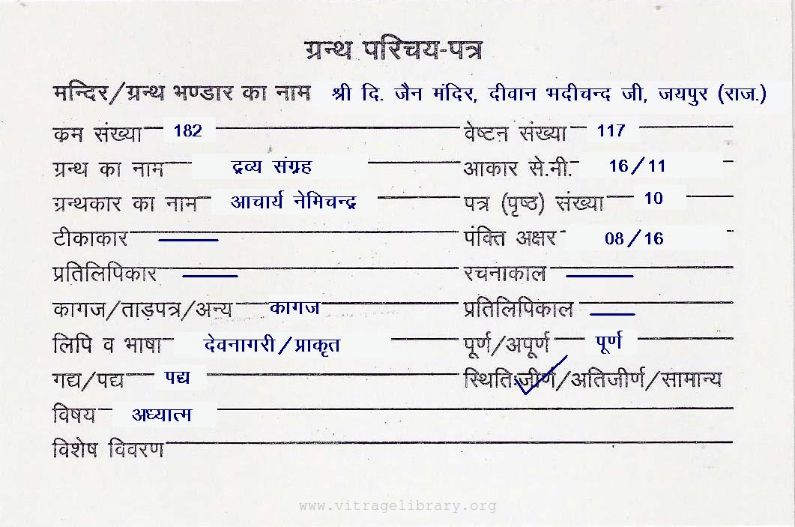 ग्रन्थ परिचय-पत्र
मन्दिर/ग्रन्थ भण्डार का नाम श्री दि. जैन मंदिर, दीवान भदीचन्द जी, जयपुर (राज.)
कम संख्या 182 वेष्टन संख्या 117
ग्रन्थ का नाम द्रव्य संग्रह आकार से.मी. 16/11
ग्रन्थकार का नाम आचार्य नेमिचन्द्र पत्र (पृष्ठ) संख्या 10
टीकाकार पंक्ति अक्षर 08/16
प्रतिलिपिकार रचनाकाल
कागज/ताड़पत्र/अन्य कागज प्रतिलिपिकाल
लिपि व भाषा देवनागरी/प्राकृत पूर्ण/अपूर्ण पूर्ण
गद्य/पद्य पद्य स्थिति:जीर्ण/अतिजीर्ण/सामान्य
विषय अध्यात्म
विशेष विवरण
www.vitragelibrary.org